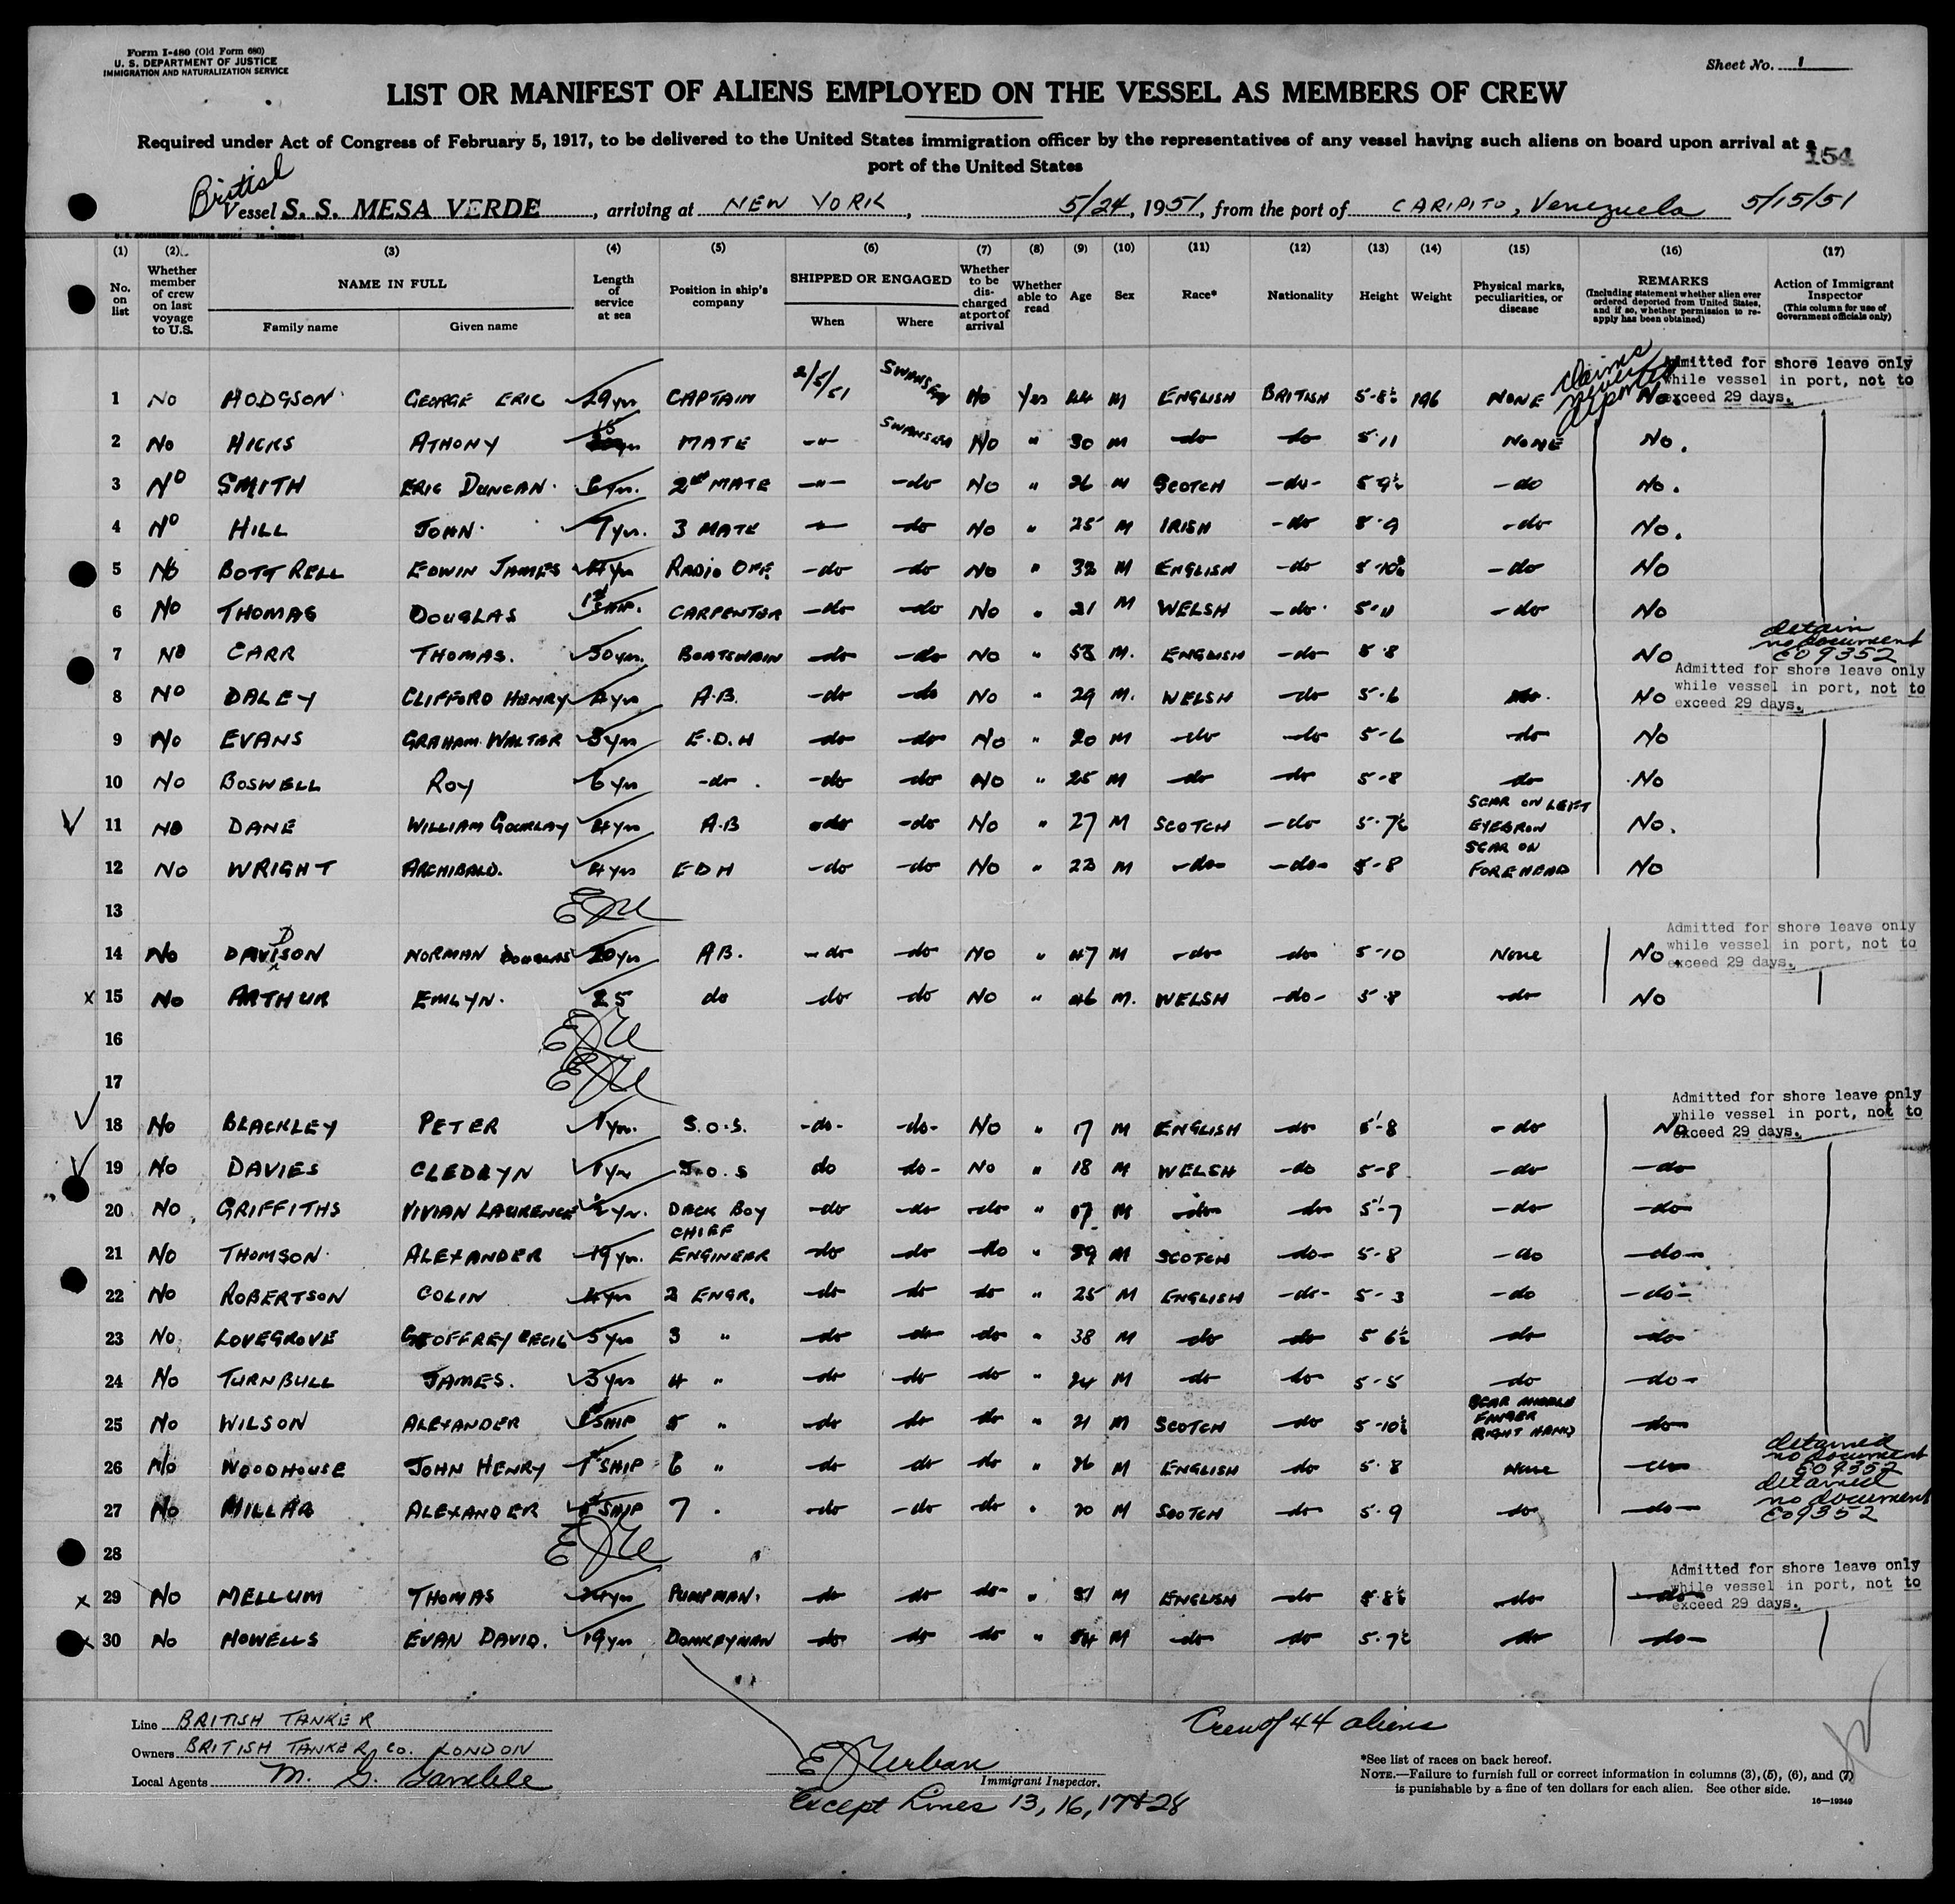 Form I-480 (Old Form 680)
U. S. DEPARTMENT OF JUSTICE
IMMIGRATION AND NATURALIZATION SERVICE
Sheet No. 1
LIST OR MANIFEST OF ALIENS EMPLOYED ON THE VESSEL AS MEMBERS OF CREW
Required under Act of Congress of February 5, 1917, to be delivered to the United States immigration officer by the representatives of any vessel having such aliens on board upon arrival at a
port of the United States
154
British
Vessel S. S. MESA VERDE, arriving at NEW YORK, 5/24, 1951, from the port of CARIPITO, Venezuela 5/15/51
(1) (2) (3) (4) (5) (6) (7) (8) (9) (10) (11) (12) (13) (14) (15) (16) (17)
No. on list
Whether member of crew on last voyage to U.S.
NAME IN FULL
Family name
Given name
Length of service at sea
Position in ship's company
SHIPPED OR ENGAGED
When
Where
Whether to be discharged at port of arrival
Whether able to read
Age
Sex
Race*
Nationality
Height
Weight
Physical marks, peculiarities, or disease
REMARKS
(Including statement whether alien ever ordered deported from United States, and if so, whether permission to reapply has been obtained)
Action of Immigrant Inspector
(This column for use of Government officials only)
claims never deported
Admitted for shore leave only
while vessel in port, not to
exceed 29 days.
1 No HODGSON GEORGE ERIC 29 yrs CAPTAIN 2/5/51 SWANSEA No Yes 44 M ENGLISH BRITISH 5-8½ 196 NONE No.
2 No HICKS ATHONY 15 MATE -"- SWANSEA No " 30 M do do 5.11 NONE No.
3 No SMITH ERIC DUNCAN 6 yrs. 2nd MATE -"- do No " 26 M SCOTCH -do- 5 9½ -do No.
4 No HILL JOHN 7 yrs. 3 MATE -"- do No " 25 M IRISH -do 5.9 -do No.
5 No BOTTRELL EDWIN JAMES yrs RADIO OFF. -do do No " 32 M ENGLISH -do -do No
6 No THOMAS DOUGLAS 1st SHIP. CARPENTER -do do No " 21 M WELSH -do- 5-11 -do No
7 No CARR THOMAS. 30 yrs. BOATSWAIN -do do No " 53 M. ENGLISH -do 5.8 No
detain
no document
EO 9352
8 No DALEY CLIFFORD HENRY yrs A.B. -do do No " 29 M. WELSH -do 5.6 No
Admitted for shore leave only
while vessel in port, not to
exceed 29 days.
9 No EVANS GRAHAM WALTER 3 yrs E.D.H do do No " 20 M do do 5-6 do No
10 No BOSWELL ROY 6 yrs -do- do do No " 25 M do do 5-8 do No
11 No DANE WILLIAM GOURLAY 4 yrs A.B do do No " 27 M SCOTCH -do 5.7½ SCAR ON LEFT EYEBROW No.
12 No WRIGHT ARCHIBALD. 4 yrs EDH -do do No " 23 M -do- -do- 5-8 SCAR ON FOREHEAD No
13
14 No DAVISON D NORMAN DOUGLAS 20 yrs AB. -do do No " 47 M -do- do- 5-10 None No.
Admitted for shore leave only
while vessel in port, not to
exceed 29 days.
x 15 No ARTHUR EMLYN. 25 do do do No " 46 M. WELSH -do- 5.8 do No
16
17
18 No BLACKLEY PETER 1 yr. S.O.S. -do- -do- No " 17 M ENGLISH do 5-8 -do No
Admitted for shore leave only
while vessel in port, not to
exceed 29 days.
19 No DAVIES CLEDRYN 1 yr J.O.S do do- No " 18 M WELSH -do 5-8 -do -do
20 No GRIFFITHS VIVIAN LAURENCE ½ yr. DECK BOY do do do " 17 M do do 5-7 -do -do
21 No THOMSON ALEXANDER 19 yrs. CHIEF ENGINEER do do No " 39 M SCOTCH do- 5-8 -do -do-
22 No ROBERTSON COLIN 4 yrs 2 ENGR. do do do " 25 M ENGLISH -do- 5-3 -do -do-
23 No. LOVEGROVE GEOFFREY CECIL 5 yrs 3 " do do do " 38 M do do 5 6½ do do
24 No TURNBULL JAMES. 3 yrs 4 " do do do " 24 M do do 5-5 do do-
25 No WILSON ALEXANDER 1st SHIP 5 " do do do " 21 M SCOTCH do 5-10½ SCAR MIDDLE FINGER RIGHT HAND do
26 No WOODHOUSE JOHN HENRY 1st SHIP 6 " do do do " 26 M ENGLISH do 5.8 None do
detained
no document
EO 9352
27 No MILLAR ALEXANDER 1st SHIP 7 " do do do " 20 M SCOTCH do 5.9 do do
detained
no document
EO 9352
28
x 29 No MELLUM THOMAS 24 yrs PUMPMAN. do do do " 51 M ENGLISH do 5.8½ do do
Admitted for shore leave only
while vessel in port, not to
exceed 29 days.
x 30 No HOWELLS EVAN DAVID. 19 yrs DONKEYMAN do do do " 54 M do do 5.7½ do do
Line BRITISH TANKER
Owners BRITISH TANKER Co. LONDON
Local Agents M. G. Gamble
Crew of 44 aliens
Immigrant Inspector.
Except Lines 13, 16, 17 & 28
*See list of races on back hereof.
NOTE.—Failure to furnish full or correct information in columns (3), (5), (6), and (7)
is punishable by a fine of ten dollars for each alien. See other side.
16—19349